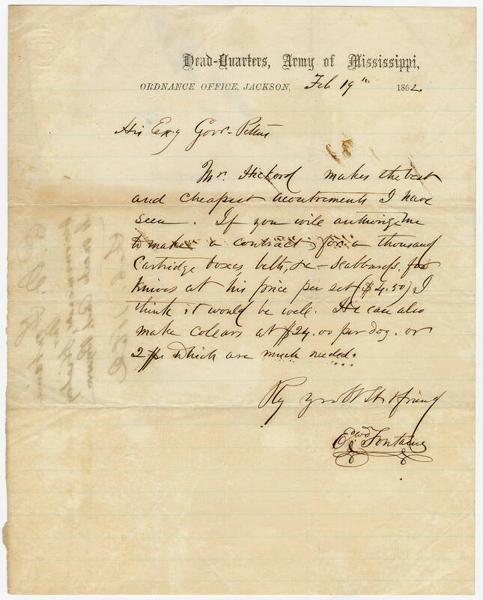 Head-Quarters, Army of Mississippi,
ORDNANCE OFFICE, JACKSON, Feb 19th 1862
His Exy Govr. Pettus
Mr Hickord makes the best
and cheapest acoutrements I have
seen. If you will authorize me
to make a contract for a thousand
Cartridge boxes, belts, &c - Scabbards for
knives at his price per set ($4.50) I
think it would be well. He can also
make Colears at $24.00 per doz. or
2 $ps which are much needed.
Rly yr obt St & friend
Edwd Fontaine